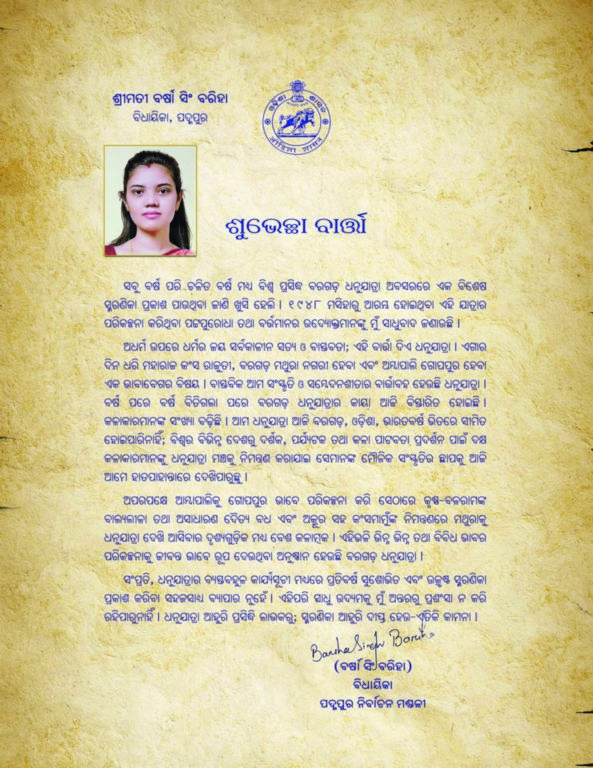 ଶ୍ରୀମତୀ ବର୍ଷା ସିଂ ବରିହା
ବିଧାୟିକା, ପଦ୍ମପୁର
ଶୁଭେଚ୍ଛା ବାର୍ତ୍ତା
ସବୁ ବର୍ଷ ପରି ଚଳିତ ବର୍ଷ ମଧ୍ୟ ବିଶ୍ୱ ପ୍ରସିଦ୍ଧ ବରଗଡ଼ ଧନୁଯାତ୍ରା ଅବସରରେ ଏକ ବିଶେଷ
ସ୍ମରଣିକା ପ୍ରକାଶ ପାଉଥିବା ଜାଣି ଖୁସି ହେଲି । ୧୯୪୮ ମସିହାରୁ ଆରମ୍ଭ ହୋଇଥିବା ଏହି ଯାତ୍ରାର
ପରିକଳ୍ପନା କରିଥିବା ପଟ୍ଟପୁରୋଧା ତଥା ବର୍ତ୍ତମାନର ଉଦ୍ୟୋକ୍ତାମାନଙ୍କୁ ମୁଁ ସାଧୁବାଦ ଜଣାଉଛି ।
ଅଧର୍ମ ଉପରେ ଧର୍ମର ଜୟ ସର୍ବକାଳୀନ ସତ୍ୟ ଓ ବାସ୍ତବତା; ଏହି ବାର୍ତ୍ତା ଦିଏ ଧନୁଯାତ୍ରା । ଏଗାର
ଦିନ ଧରି ମହାରାଜ କଂସ ରାଜୁତୀ, ବରଗଡ଼ ମଥୁରା ନଗରୀ ହେବା ଏବଂ ଅମ୍ବାପାଲି ଗୋପପୁର ହେବା
ଏକ ଭାବାବେଗର ବିଷୟ । ବାସ୍ତବିକ ଆମ ସଂସ୍କୃତି ଓ ସମ୍ବେଦନଶୀଳତାର ବାର୍ତ୍ତାବହ ହେଉଛି ଧନୁଯାତ୍ରା ।
ବର୍ଷ ପରେ ବର୍ଷ ବିତିଗଲା ପରେ ବରଗଡ଼ ଧନୁଯାତ୍ରାର କାୟା ଆଜି ବିସ୍ତାରିତ ହୋଇଛି ।
କଳାକାରମାନଙ୍କ ସଂଖ୍ୟା ବଢ଼ିଛି । ଆମ ଧନୁଯାତ୍ରା ଆଜି ବରଗଡ଼, ଓଡ଼ିଶା, ଭାରତବର୍ଷ ଭିତରେ ସୀମିତ
ହୋଇପାରିନାହିଁ; ବିଶ୍ୱର ବିଭିନ୍ନ ଦେଶରୁ ଦର୍ଶକ, ପର୍ଯ୍ୟଟକ ତଥା କଳା ପାଟବତା ପ୍ରଦର୍ଶନ ପାଇଁ ଦକ୍ଷ
କଳାକାରମାନଙ୍କୁ ଧନୁଯାତ୍ରା ମଞ୍ଚକୁ ନିମନ୍ତ୍ରଣ କରାଯାଇ ସେମାନଙ୍କ ମୌଳିକ ସଂସ୍କୃତିର ଛାପକୁ ଆଜି
ଆମେ ହାତପାହାନ୍ତାରେ ଦେଖିପାରୁଛୁ ।
ଅପରପକ୍ଷେ ଆମ୍ବାପାଲିକୁ ଗୋପପୁର ଭାବେ ପରିକଳ୍ପନା କରି ସେଠାରେ କୃଷ୍ଣ-ବଳରାମଙ୍କ
ବାଲ୍ୟଲୀଳା ତଥା ଅସାଧାରଣ ଦୈତ୍ୟ ବଧ ଏବଂ ଅକ୍ରୁର ସହ କଂସମାମୁଁଙ୍କ ନିମନ୍ତ୍ରଣରେ ମଥୁରାକୁ
ଧନୁଯାତ୍ରା ଦେଖି ଆସିବାର ଦୃଶ୍ୟଗୁଡ଼ିକ ମଧ୍ୟ ବେଶ କଳାତ୍ମକ । ଏହିଭଳି ଭିନ୍ନ ଭିନ୍ନ ତଥା ବିବିଧ ଭାବର
ପରିକଳ୍ପନାକୁ ଜୀବନ୍ତ ଭାବେ ରୂପ ଦେଉଥିବା ଅନୁଷ୍ଠାନ ହେଉଛି ବରଗଡ଼ ଧନୁଯାତ୍ରା ।
ସଂପ୍ରତି, ଧନୁଯାତ୍ରାର ବ୍ୟସ୍ତବହୁଳ କାର୍ଯ୍ୟସୂଚୀ ମଧ୍ୟରେ ପ୍ରତିବର୍ଷ ସୁଶୋଭିତ ଏବଂ ଉତ୍କୃଷ୍ଟ ସ୍ମରଣିକା
ପ୍ରକାଶ କରିବା ସହଜସାଧ୍ୟ ବ୍ୟାପାର ନୁହେଁ । ଏହିପରି ସାଧୁ ଉଦ୍ୟମକୁ ମୁଁ ଅନ୍ତରରୁ ପ୍ରଶଂସା ନ କରି
ରହିପାରୁନାହିଁ । ଧନୁଯାତ୍ରା ଆହୁରି ପ୍ରସିଦ୍ଧି ଲାଭକରୁ; ସ୍ମରଣିକା ଆହୁରି ଦୀପ୍ତ ହେଉ-ଏତିକି କାମନା ।
Barsha Singh Bariha
(ବର୍ଷା ସିଂ ବରିହା)
ବିଧାୟିକା
ପଦ୍ମପୁର ନିର୍ବାଚନ ମଣ୍ଡଳୀ